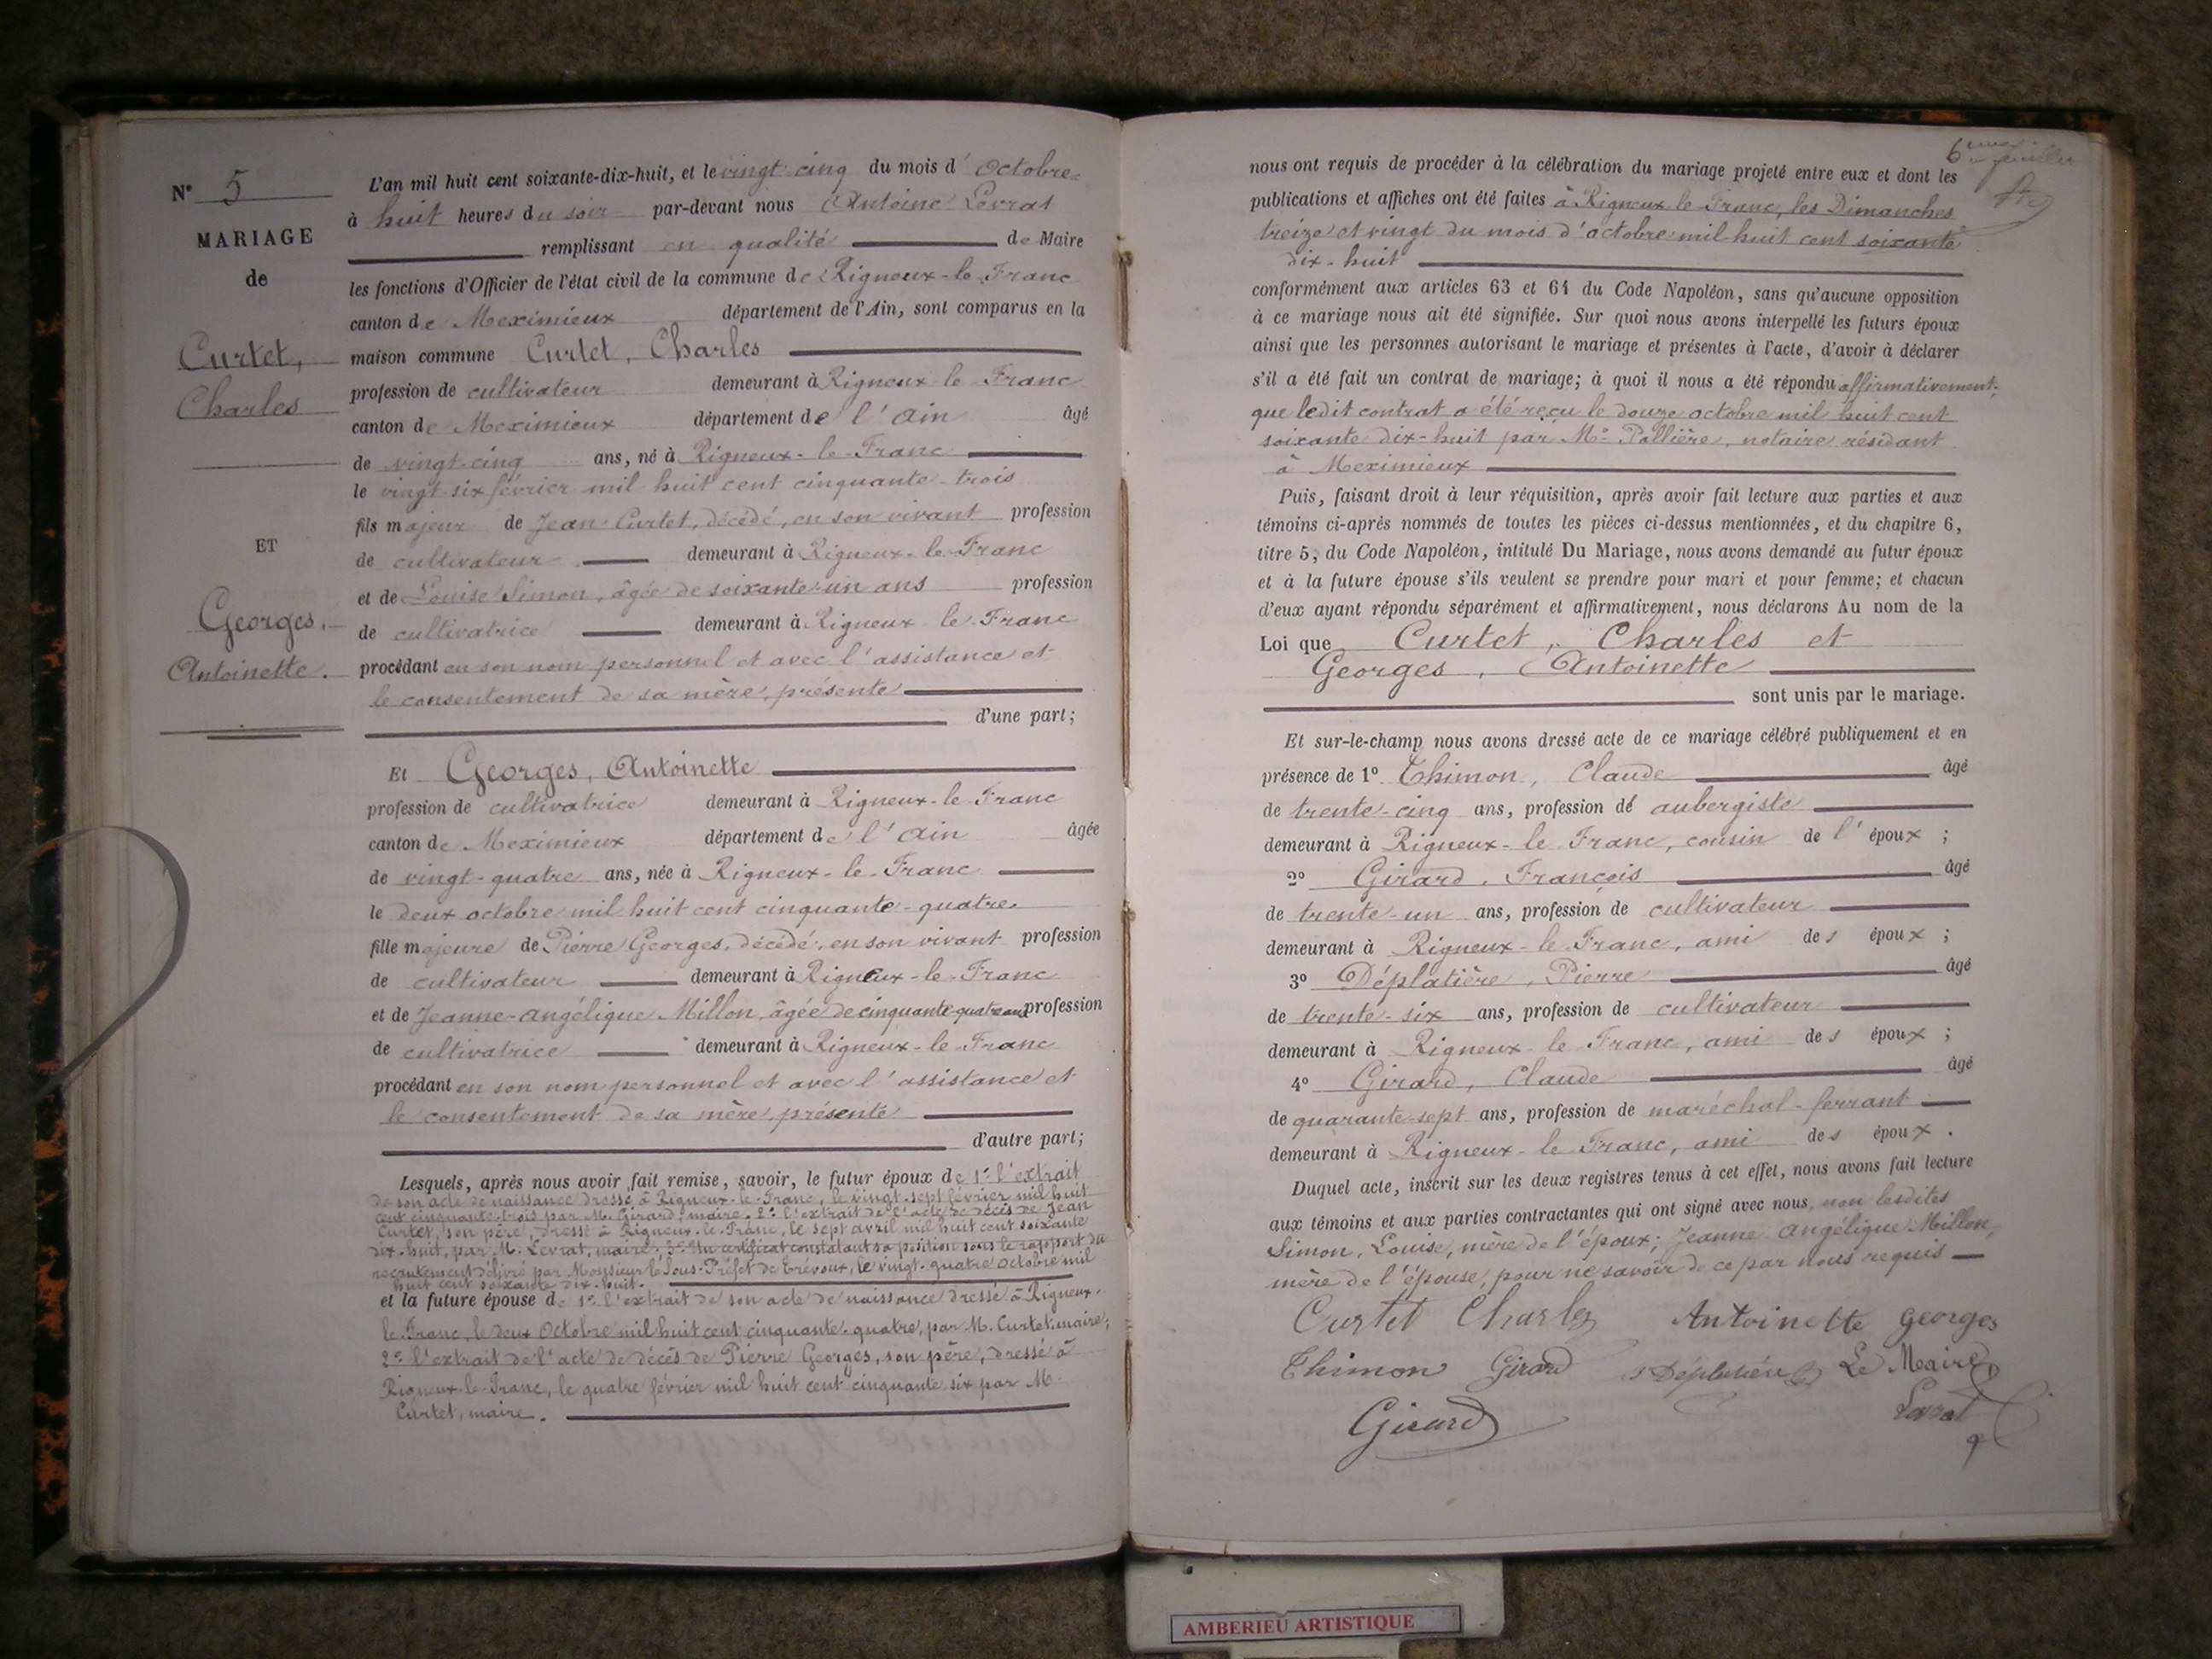 N° 5
MARIAGE
de
Curtet,
Charles
ET
Georges,
Antoinette.
L'an mil huit cent soixante-dix-huit, et le vingt-cinq du mois d'octobre
à huit heures du soir par-devant nous Antoine Levrat
remplissant en qualité de Maire
les fonctions d'Officier de l'état civil de la commune de Rigneux-le-Franc
canton de Meximieux département de l'Ain, sont comparus en la
maison commune Curtet, Charles
profession de cultivateur demeurant à Rigneux le Franc
canton de Meximieux département de l'Ain âgé
de vingt-cinq ans, né à Rigneux-le-Franc
le vingt-six février mil huit cent cinquante-trois
fils majeur de Jean Curtet, décédé, en son vivant profession
de cultivateur demeurant à Rigneux-le-Franc
et de Louise Simon, âgée de soixante-un ans profession
de cultivatrice demeurant à Rigneux le Franc
procédant en son nom personnel et avec l'assistance et
le consentement de sa mère, présente
d'une part;
Et Georges, Antoinette
profession de cultivatrice demeurant à Rigneux-le-Franc
canton de Meximieux département de l'Ain âgée
de vingt-quatre ans, née à Rigneux-le-Franc
le deux octobre mil huit cent cinquante-quatre
fille majeure de Pierre Georges, décédé, en son vivant profession
de cultivateur demeurant à Rigneux-le-Franc
et de Jeanne-Angélique Millon, âgée de cinquante-quatre ans profession
de cultivatrice demeurant à Rigneux-le-Franc
procédant en son nom personnel et avec l'assistance et
le consentement de sa mère, présente
d'autre part;
Lesquels, après nous avoir fait remise, savoir, le futur époux de 1° l'extrait
de son acte de naissance dressé à Rigneux-le-Franc, le vingt-sept février mil huit
cent cinquante-trois par M. Girard, maire. 2° l'extrait de l'acte de décès de Jean
Curtet, son père, dressé à Rigneux-le-Franc, le sept avril mil huit cent soixante
dix-huit, par M. Levrat, maire; 3° Un certificat constatant sa position sous le rapport du
recrutement délivré par Monsieur le Sous-Préfet de Trévoux, le vingt-quatre octobre mil
huit cent soixante dix-huit.
et la future épouse de 1° l'extrait de son acte de naissance dressé à Rigneux-
le-Franc, le deux Octobre mil huit cent cinquante-quatre, par M. Curtet, maire;
2° l'extrait de l'acte de décès de Pierre Georges, son père, dressé à
Rigneux-le-Franc, le quatre février mil huit cent cinquante six par M.
Curtet, maire.
nous ont requis de procéder à la célébration du mariage projeté entre eux et dont les
publications et affiches ont été faites à Rigneux le Franc, les Dimanches
treize et vingt du mois d'octobre mil huit cent soixante
dix-huit
conformément aux articles 63 et 64 du Code Napoléon, sans qu'aucune opposition
à ce mariage nous ait été signifiée. Sur quoi nous avons interpellé les futurs époux
ainsi que les personnes autorisant le mariage et présentes à l'acte, d'avoir à déclarer
s'il a été fait un contrat de mariage; à quoi il nous a été répondu affirmativement;
que ledit contrat a été reçu le douze octobre mil huit cent
soixante dix-huit par Me Pallière, notaire résidant
à Meximieux
Puis, faisant droit à leur réquisition, après avoir fait lecture aux parties et aux
témoins ci-après nommés de toutes les pièces ci-dessus mentionnées, et du chapitre 6,
titre 5, du Code Napoléon, intitulé Du Mariage, nous avons demandé au futur époux
et à la future épouse s'ils veulent se prendre pour mari et pour femme; et chacun
d'eux ayant répondu séparément et affirmativement, nous déclarons Au nom de la
Loi que Curtet, Charles et
Georges, Antoinette
sont unis par le mariage.
Et sur-le-champ nous avons dressé acte de ce mariage célébré publiquement et en
présence de 1° Thimon, Claude âgé
de trente-cinq ans, profession de aubergiste
demeurant à Rigneux-le Franc, cousin de l'époux;
2° Girard, François âgé
de trente-un ans, profession de cultivateur
demeurant à Rigneux-le-Franc, ami des époux;
3° Déplatière, Pierre âgé
de trente-six ans, profession de cultivateur
demeurant à Rigneux-le Franc, ami des époux;
4° Girard, Claude âgé
de quarante-sept ans, profession de maréchal-ferrant
demeurant à Rigneux-le Franc, ami des époux.
Duquel acte, inscrit sur les deux registres tenus à cet effet, nous avons fait lecture
aux témoins et aux parties contractantes qui ont signé avec nous, non lesdites
Simon, Louise, mère de l'époux; Jeanne Angélique Millon,
mère de l'épouse, pour ne savoir de ce par nous requis
Curtet Charles Antoinette Georges
Thimon Girard Déplatière Le Maire
Girard Levrat
AMBERIEU ARTISTIQUE